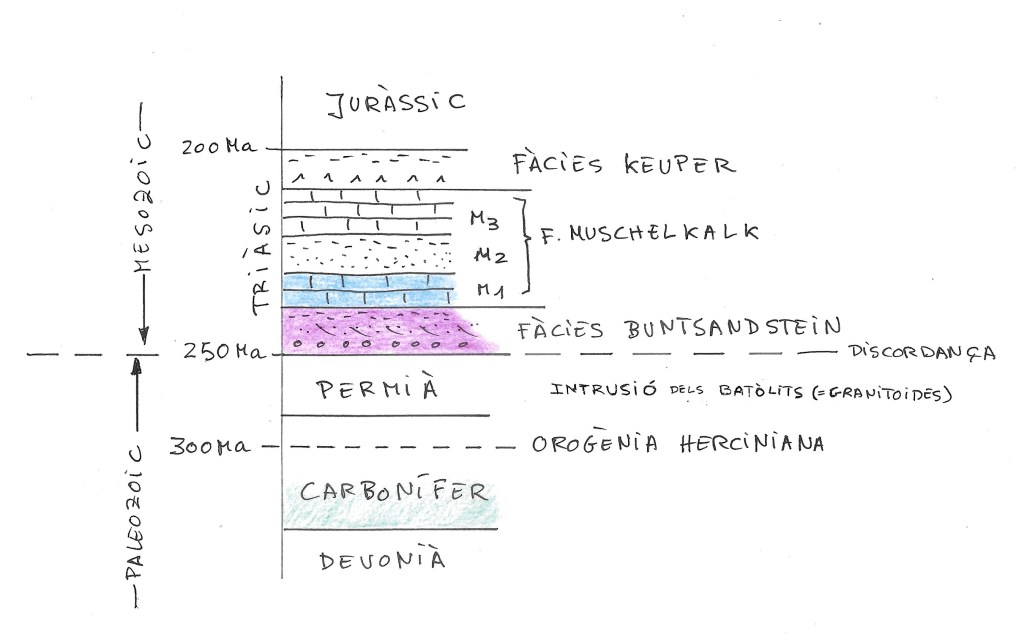 JURÀSSIC
200 Ma
FÀCIES KEUPER
MESOZOIC
TRIÀSIC
M3
F. MUSCHELKALK
M2
M1
FÀCIES BUNTSANDSTEIN
250 Ma
DISCORDANÇA
PERMIÀ
INTRUSIÓ DELS BATÒLITS (=GRANITOIDES)
300 Ma
OROGÈNIA HERCINIANA
PALEOZOIC
CARBONÍFER
DEVONIÀ